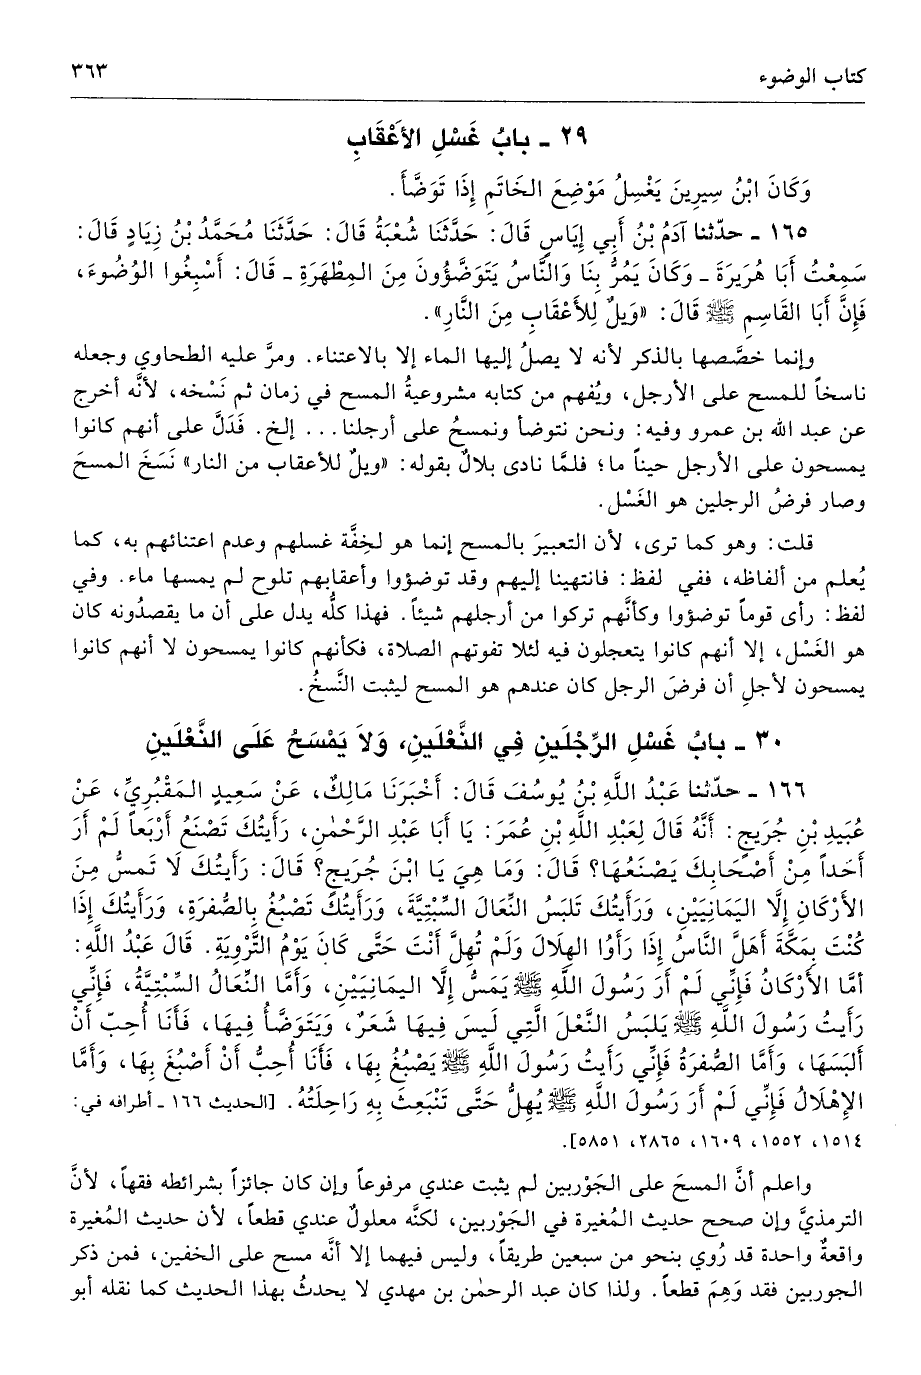 كتاب الوضوء
٣٦٣
٢٩ - بابُ غَسْلِ الأَعْقَابِ
وَكَانَ ابْنُ سِيرِينَ يَغْسِلُ مَوْضِعَ الخَاتَمِ إِذَا تَوَضَّأَ.
١٦٥ - حدّثنا آدَمُ بْنُ أَبِي إِيَاسٍ قَالَ: حَدَّثَنَا شُعْبَةُ قَالَ: حَدَّثَنَا مُحَمَّدُ بْنُ زِيَادٍ قَالَ:
سَمِعْتُ أَبَا هُرَيرَةَ - وَكَانَ يَمُرُّ بِنَا وَالنَّاسُ يَتَوَضَّؤُونَ مِنَ المِطْهَرَةِ - قَالَ: أَسْبِغُوا الوُضُوءَ،
فَإِنَّ أَبَا القَاسِمِ ﷺ قَالَ: «وَيلٌ لِلأَعْقَابِ مِنَ النَّارِ».
وإنما خصَّصها بالذكر لأنه لا يصلُ إليها الماء إلا بالاعتناء. ومرَّ عليه الطحاوي وجعله
ناسخاً للمسح على الأرجل، ويُفهم من كتابه مشروعيةُ المسح في زمان ثم نَسْخه، لأنَّه أخرج
عن عبد الله بن عمرو وفيه: ونحن نتوضأ ونمسحُ على أرجلنا... إلخ. فَدَلَّ على أنهم كانوا
يمسحون على الأرجل حيناً ما؛ فلمَّا نادى بلالٌ بقوله: «ويلٌ للأعقاب من النار» نَسَخَ المسحَ
وصار فرضُ الرجلين هو الغَسْل.
قلت: وهو كما ترى، لأن التعبيرَ بالمسح إنما هو لخِفَّة غسلهم وعدم اعتنائهم به، كما
يُعلم من ألفاظه، ففي لفظ: فانتهينا إليهم وقد توضؤوا وأعقابهم تلوح لم يمسها ماء. وفي
لفظ: رأى قوماً توضؤوا وكأنَّهم تركوا من أرجلهم شيئاً. فهذا كلُّه يدل على أن ما يقصدُونه كان
هو الغَسْل، إلا أنهم كانوا يتعجلون فيه لئلا تفوتهم الصلاة، فكأنهم كانوا يمسحون لا أنهم كانوا
يمسحون لأجلِ أن فرضَ الرجل كان عندهم هو المسح ليثبت النَّسخُ.
٣٠ - بابُ غَسْلِ الرِّجْلَينِ فِي النَّعْلَينِ، وَلاَ يَمْسَحُ عَلَى النَّعْلَينِ
١٦٦ - حدّثنا عَبْدُ اللَّهِ بْنُ يُوسُفَ قَالَ: أَخْبَرَنَا مَالِكٌ، عَنْ سَعِيدٍ المَقْبُرِيِّ، عَنْ
عُبَيدِ بْنِ جُرَيجٍ: أَنَّهُ قَالَ لِعَبْدِ اللَّهِ بْنِ عُمَرَ: يَا أَبَا عَبْدِ الرَّحْمٰنِ، رَأَيتُكَ تَصْنَعُ أَرْبَعاً لَمْ أَرَ
أَحَداً مِنْ أَصْحَابِكَ يَصْنَعُهَا؟ قَالَ: وَمَا هِيَ يَا ابْنَ جُرَيجٍ؟ قَالَ: رَأَيتُكَ لَا تَمسُّ مِنَ
الأَرْكَانِ إِلَّا اليَمَانِيَيْنِ، وَرَأَيتُكَ تَلبَسُ النِّعَالَ السِّبْتِيَّةَ، وَرَأَيتُكَ تَصْبُغُ بِالصُّفرَةِ، وَرَأَيتُكَ إِذَا
كُنْتَ بِمَكَّةَ أَهَلَّ النَّاسُ إِذَا رَأَوُا الهِلَالَ وَلَمْ تُهِلَّ أَنْتَ حَتَّى كَانَ يَوْمُ التَّرْوِيَةِ. قَالَ عَبْدُ اللَّهِ:
أَمَّا الأَرْكَانُ فَإِنِّي لَمْ أَرَ رَسُولَ اللَّهِ ﷺ يَمَسُّ إِلَّا اليمَانِيَيْنِ، وَأَمَّا النِّعَالُ السِّبْتِيَّةُ، فَإِنِّي
رَأَيتُ رَسُولَ اللَّهِ ﷺ يَلبَسُ النَّعْلَ الَّتِي لَيسَ فِيهَا شَعَرٌ، وَيَتَوَضَّأُ فِيهَا، فَأَنَا أُحِبّ أَنْ
أَلبَسَهَا، وَأَمَّا الصُّفرَةُ فَإِنِّي رَأَيتُ رَسُولَ اللَّهِ ﷺ يَصْبُغُ بِهَا، فَأَنَا أُحِبُّ أَنْ أَصْبُغَ بِهَا، وَأَمَّا
الإِهْلَالُ فَإِنِّي لَمْ أَرَ رَسُولَ اللَّهِ ﷺ يُهِلُّ حَتَّى تَنْبَعِثَ بِهِ رَاحِلَتُهُ. [الحديث ١٦٦ - أطرافه في:
١٥١٤، ١٥٥٢، ١٦٠٩، ٢٨٦٥، ٥٨٥١].
واعلم أنَّ المسحَ على الجَوْربين لم يثبت عندي مرفوعاً وإن كان جائزاً بشرائطه فقهاً، لأنَّ
الترمذيَّ وإن صحح حديث المُغيرة في الجَوْربين، لكنَّه معلولٌ عندي قطعاً، لأن حديث المُغيرة
واقعةٌ واحدة قد رُوي بنحو من سبعين طريقاً، وليس فيهما إلا أنَّه مسح على الخفين، فمن ذكر
الجوربين فقد وَهِمَ قطعاً. ولذا كان عبد الرحمٰن بن مهدي لا يحدثُ بهذا الحديث كما نقله أبو